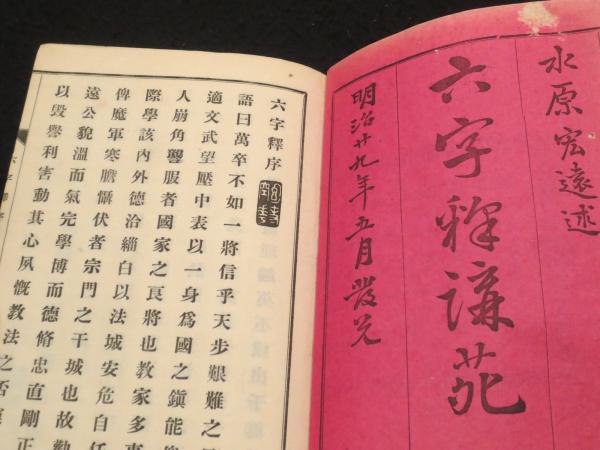 水原宏遠述
六字釋講苑
明治廿九年五月發兌
六字釋序
語曰萬卒不如一將信乎天步艱難之
適文武望壓中表以一身爲國之鎭能
人崩角讋服者國家之良將也教家多
際學該內外德洽緇白以法城安危自任
俾魔軍寒膽懾伏者宗門之干城也故
遠公貌溫而氣完學博而德脩忠直剛正
以毀譽利害動其心夙慨教法之否
六字釋序